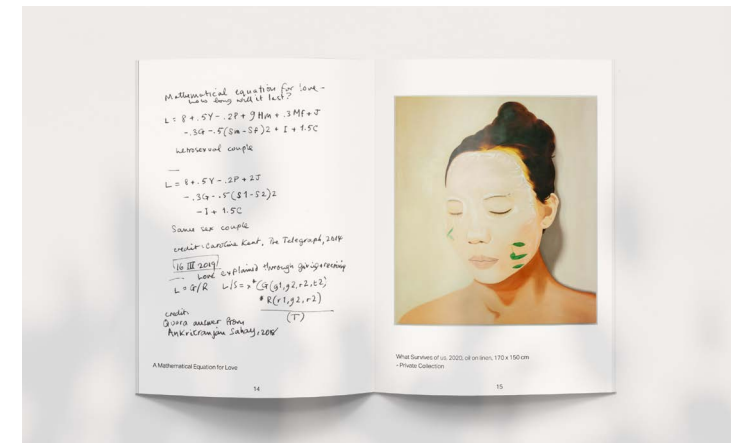 Mathematical equation for love -
how long will it last?
L = 8 + .5Y - .2P + 9Hm + .3Mf + J
- .3G - .5(Sm - Sf)2 + I + 1.5C
hetrosexual couple
L = 8 + .5Y - .2P + 2J
- .3G - .5(S1 - S2)2
- I + 1.5C
Same sex couple
credit: Caroline Kent, The Telegraph, 2014
16 III 2019
Love explained through giving & receiving
L = G/R L/S = x*(G(g1,g2,r2,t2)
* R(r1,g2,r2)
(T)
credit:
Quora answer from
Sahay, 2018
A Mathematical Equation for Love
14
What Survives of us, 2020, oil on linen, 170 x 150 cm
- Private Collection
15